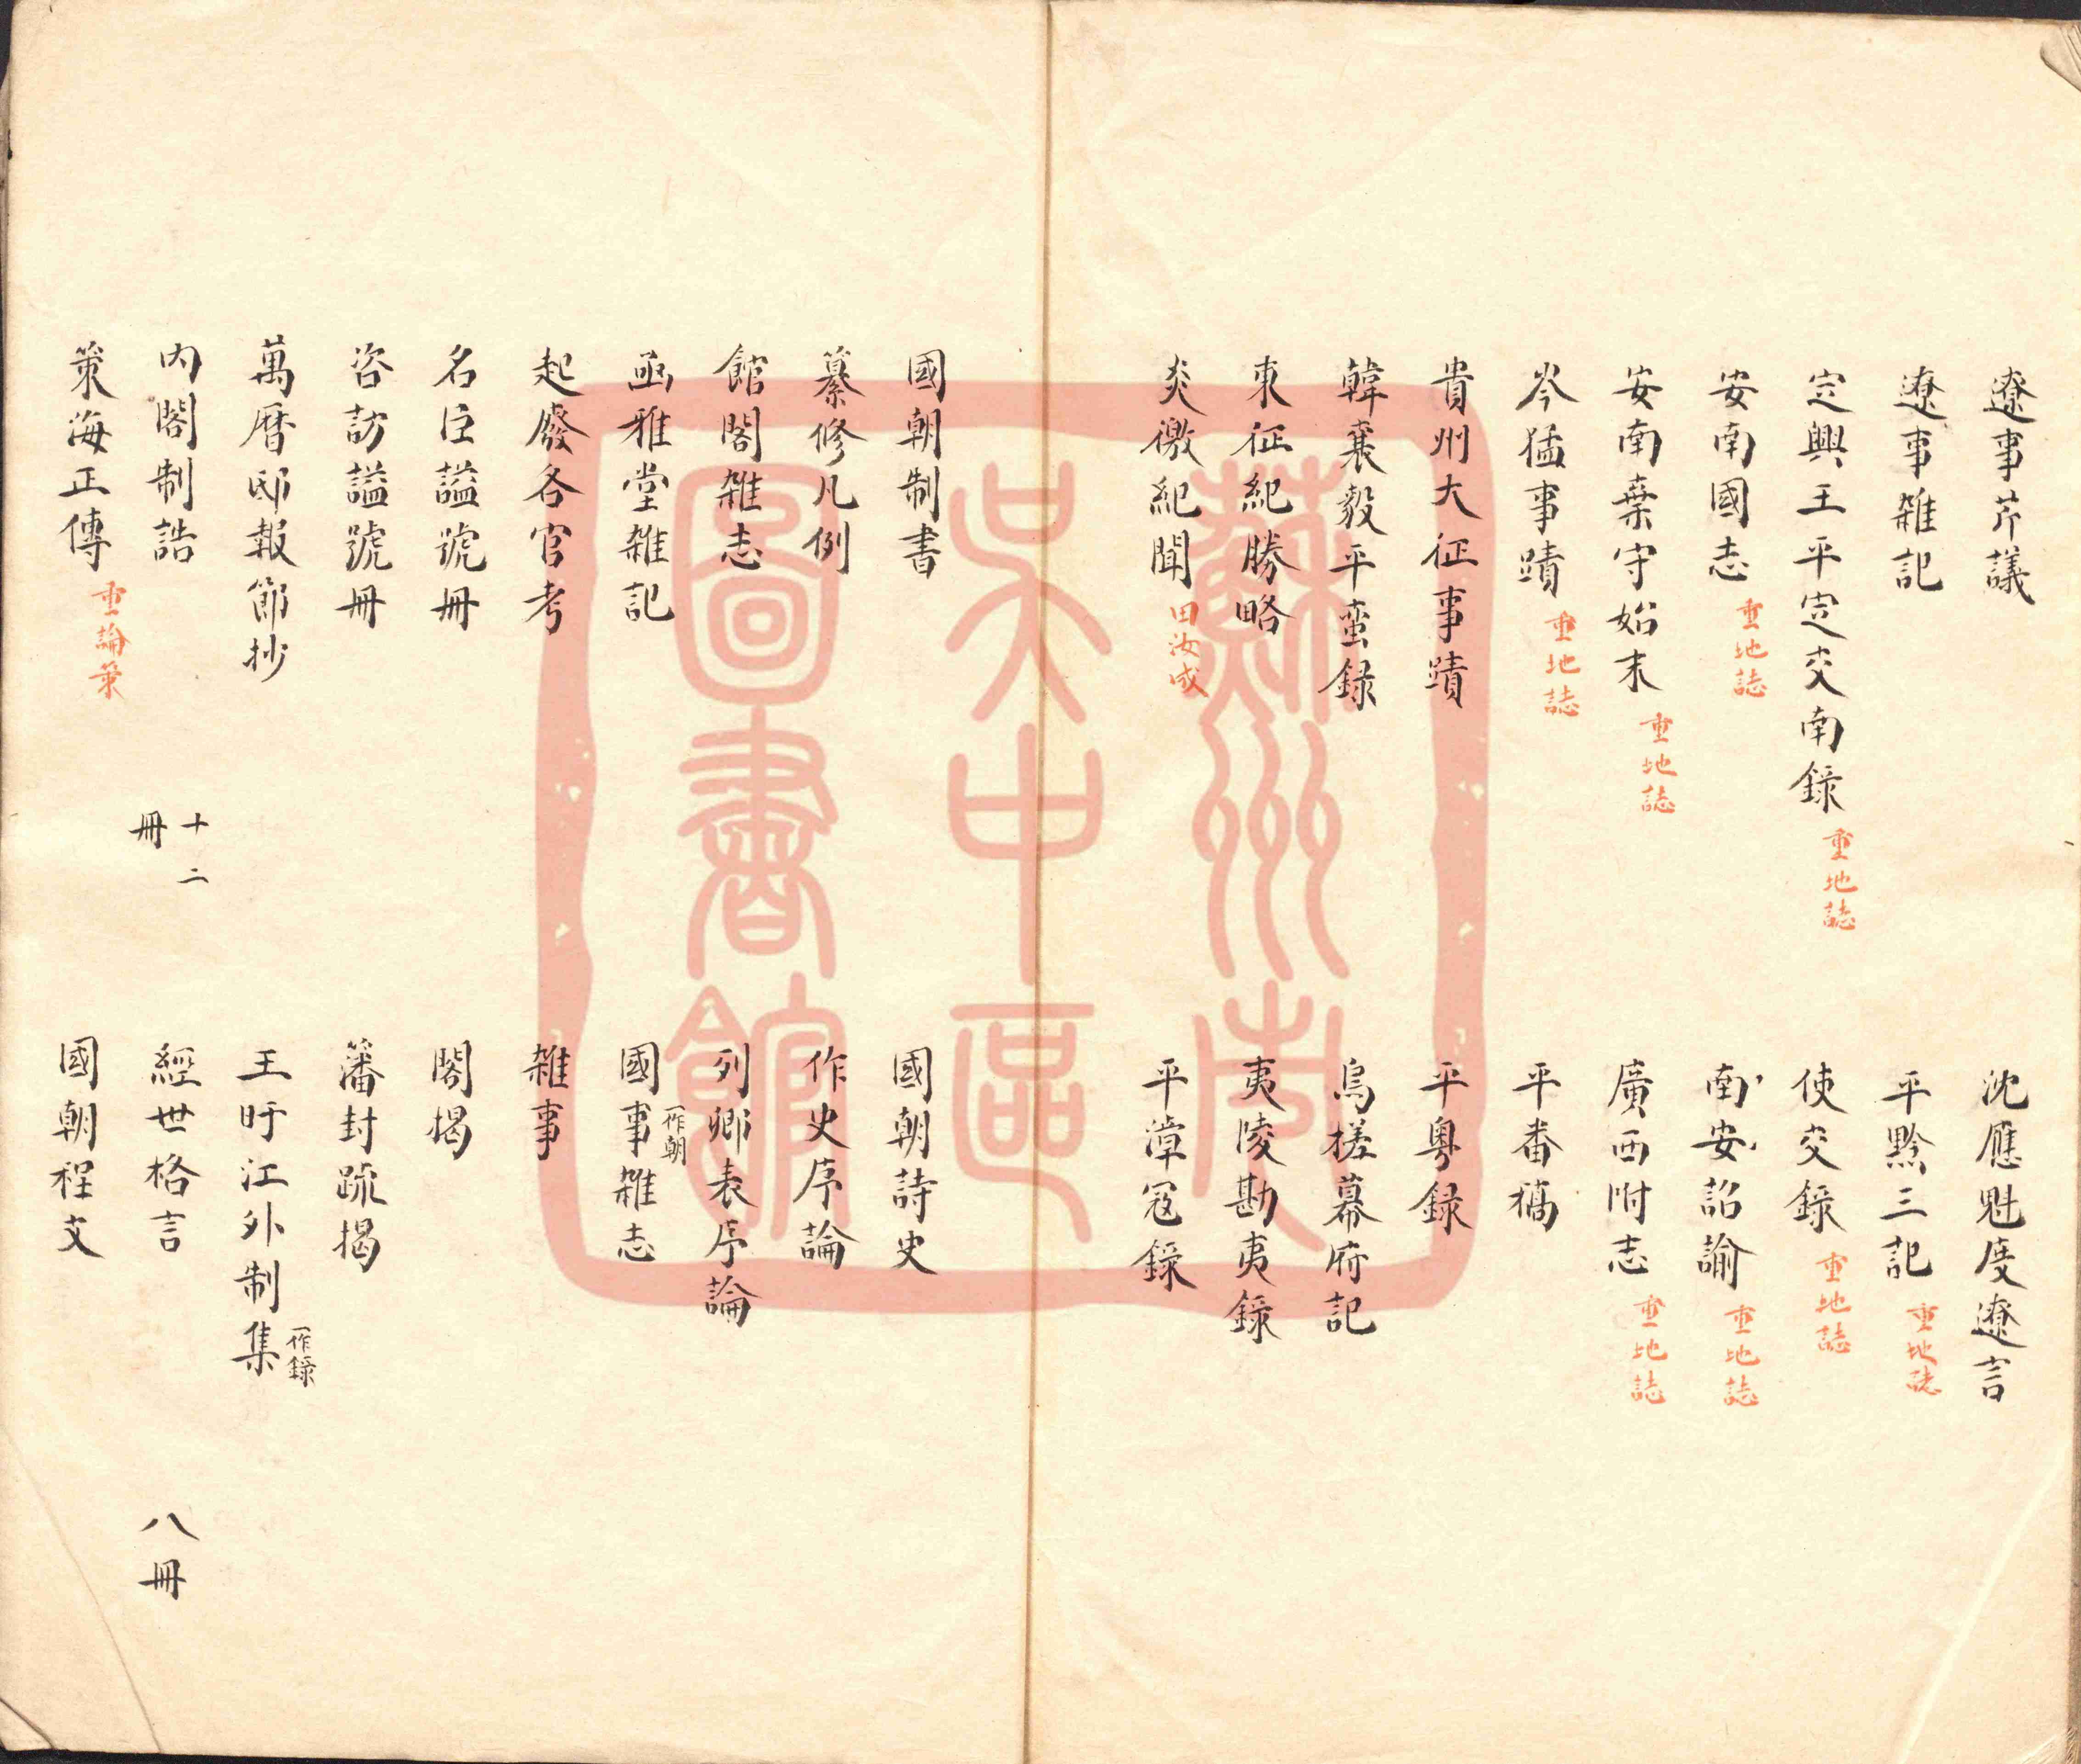 遼事芹議 沈應魁度遼言
遼事雜記 平黔三記 重地誌
定興王平定交南錄 重地誌 使交錄 重地誌
安南國志 重地誌 南安詔諭 重地誌
安南棄守始末 重地誌 廣西附志 重地誌
岑猛事蹟 重地誌 平番稿
貴州大征事蹟 平粵録
韓襄毅平蛮録 烏槎幕府記
東征紀勝略 夷陵勘夷錄
炎徼紀聞 田汝成 平漳寇錄
國朝制書 國朝詩史
纂修凡例 作史序論
館閣雜志 列卿表序論
函雅堂雜記 國事一作朝雜志
起廢各官考 雜事
名臣謚號冊 閣揭
咨訪謚號冊 籓封疏揭
萬曆邸報節抄 王盱江外制集一作錄
内閣制誥 十二冊 經世格言 八冊
策海正傳 重論策 國朝程文
蘇州市
吴中區
圖書館